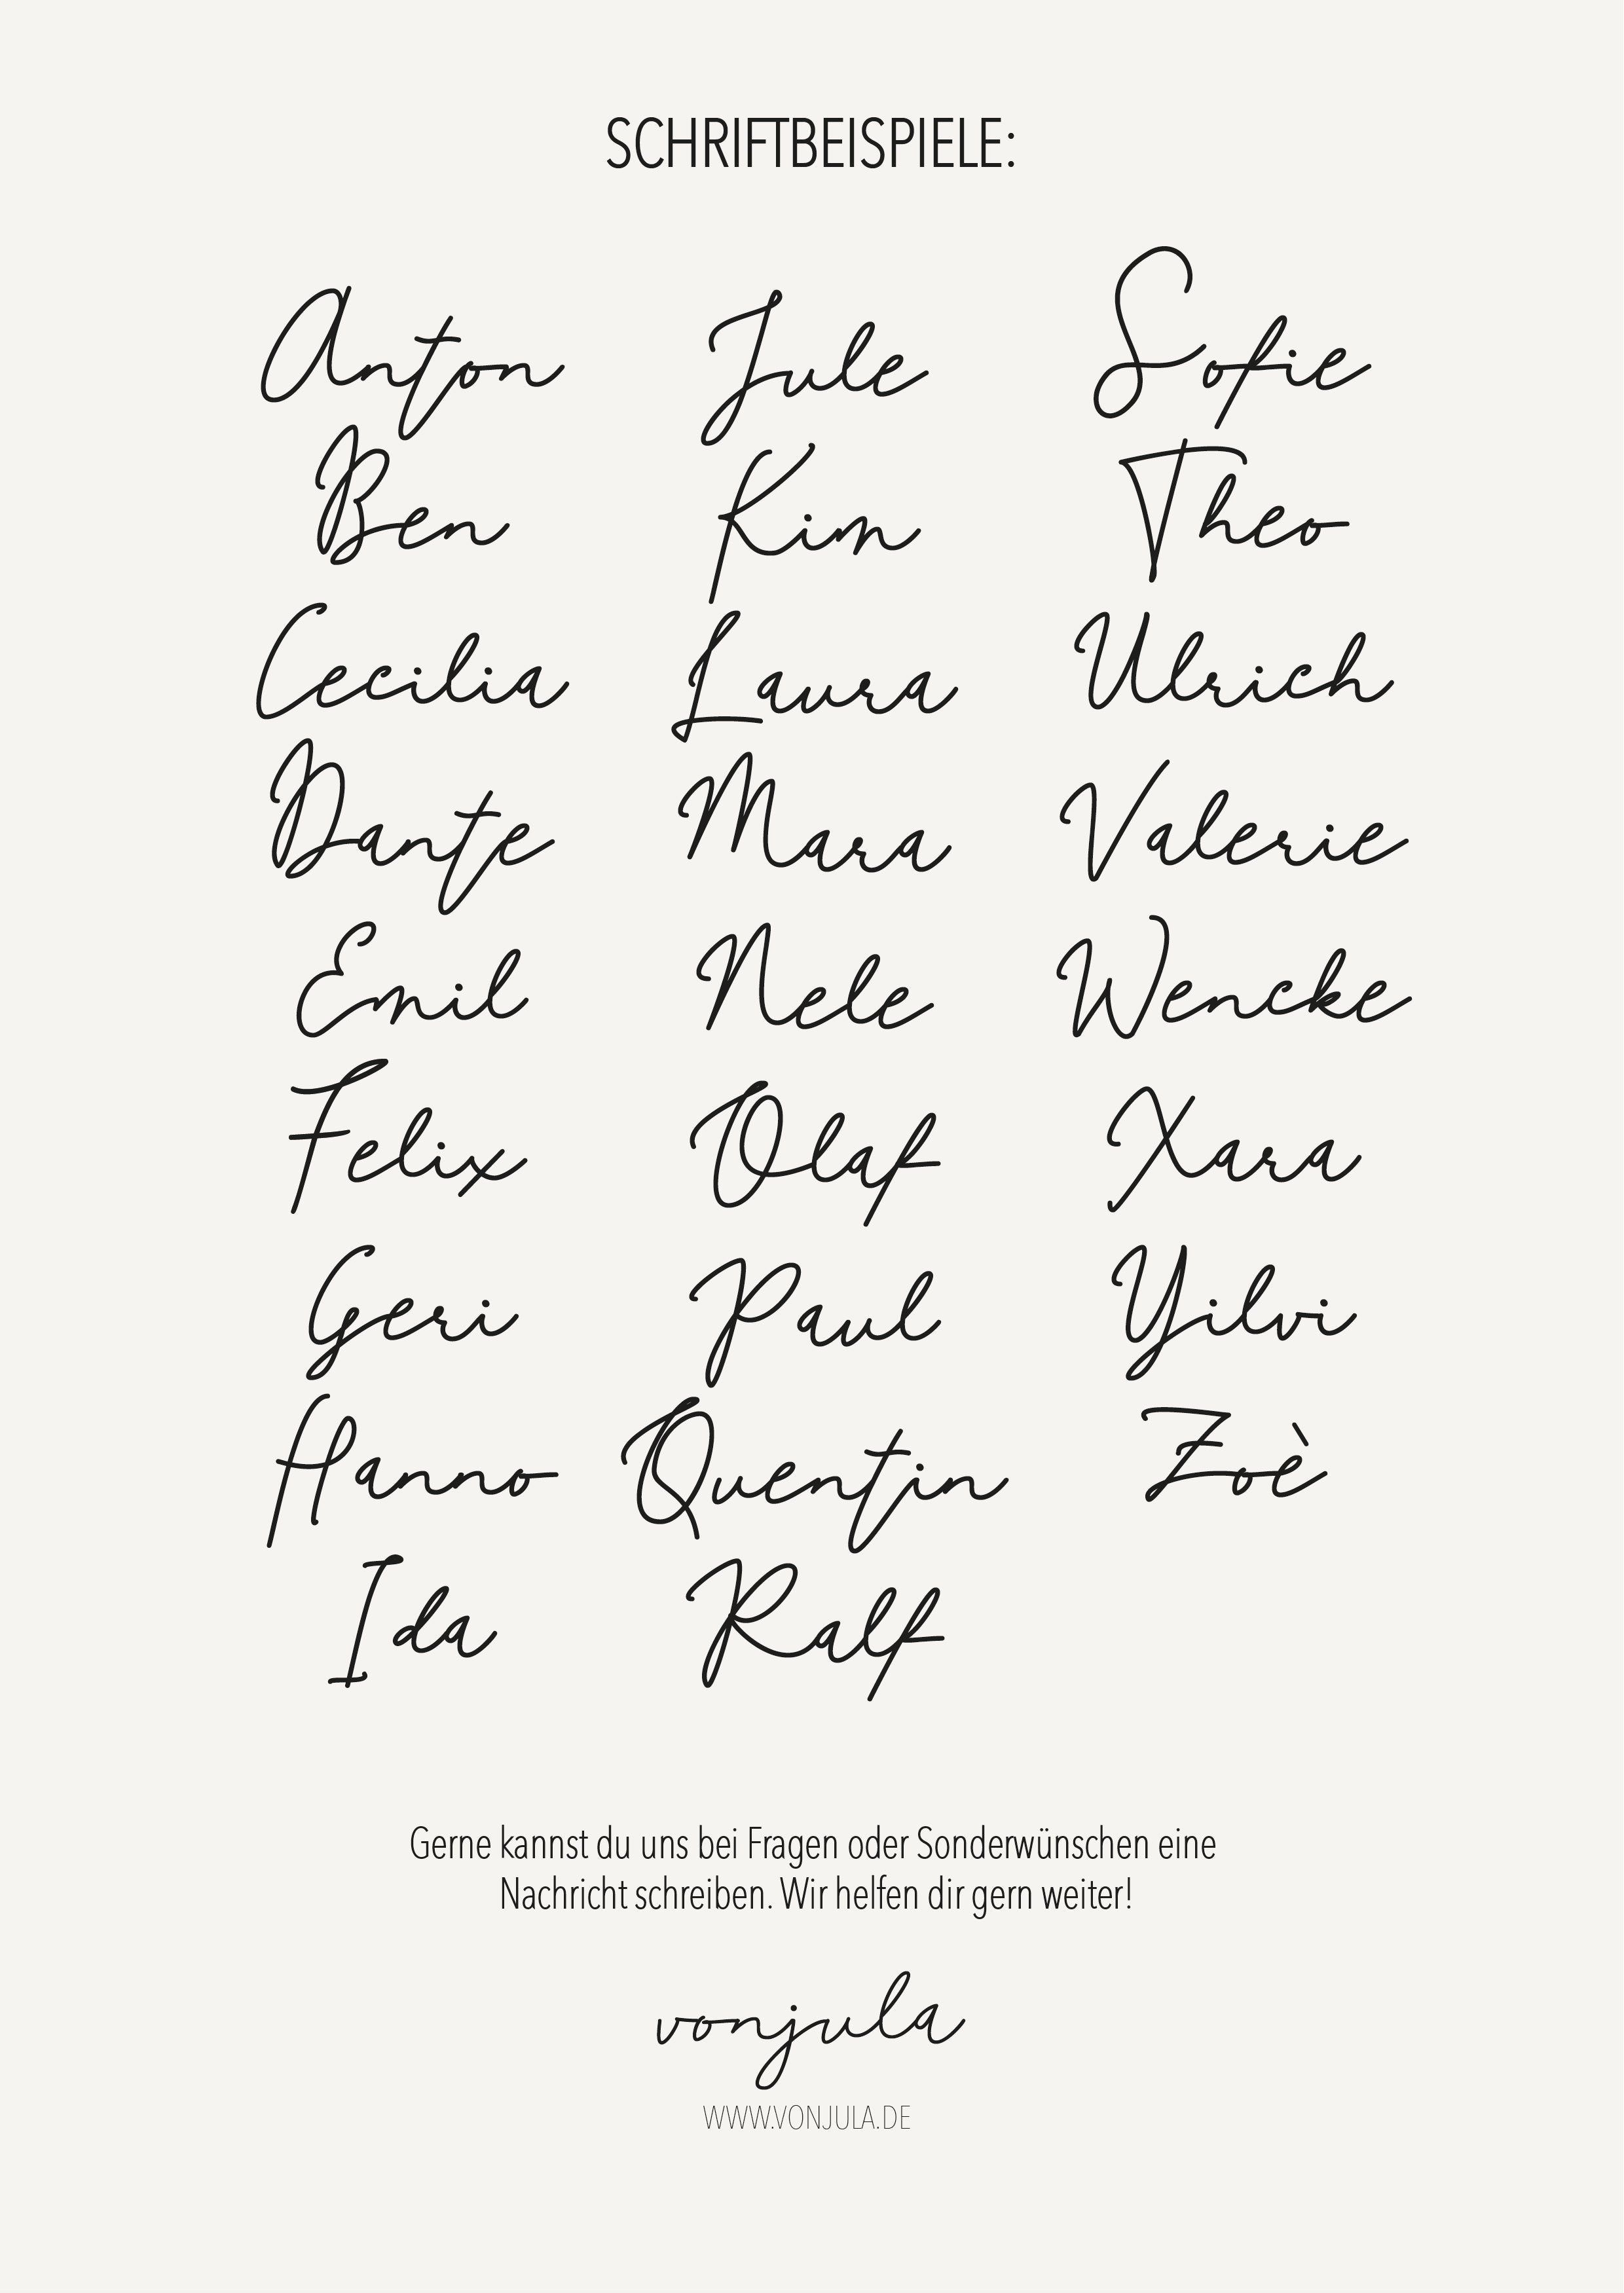 SCHRIFTBEISPIELE:
Anton
Ben
Cecilia
Dante
Emil
Felix
Geri
Hanno
Ida
Jule
Kim
Laura
Mara
Nele
Olaf
Paul
Quentin
Ralf
Sofie
Theo
Ulrich
Valerie
Wencke
Xara
Yilvi
Zoè
Gerne kannst du uns bei Fragen oder Sonderwünschen eine
Nachricht schreiben. Wir helfen dir gern weiter!
vonjula
WWW.VONJULA.DE